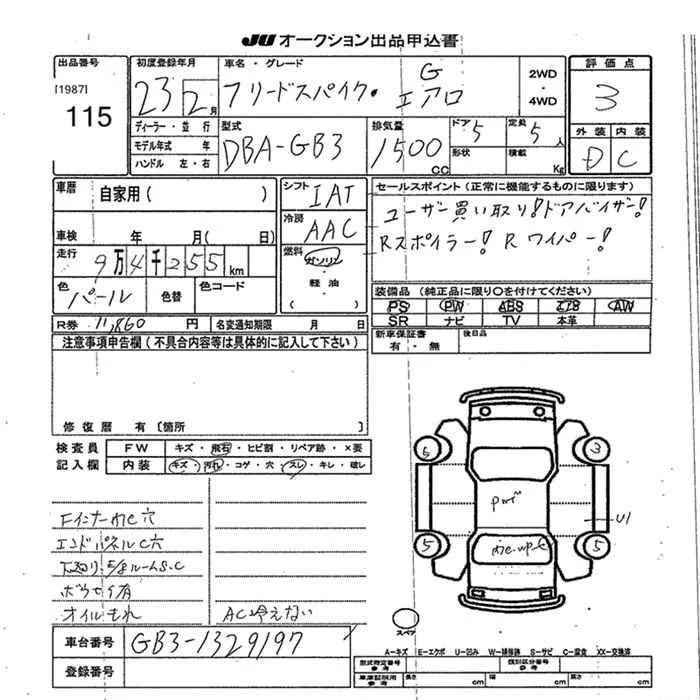 JU オークション出品申込書
出品番号
[1987]
115
初度登録年月
23 2月
車名・グレード
フリードスパイク・ G エアロ
2WD
・
4WD
評価点
3
外装 内装
D C
ディーラー・並行
モデル年式 年
ハンドル 左・右
型式
DBA-GB3
排気量
1500 CC
ドア 5
形状
定員 5人
積載 Kg
車歴 自家用( )
車検 年 月( 日)
走行 9万4千255 km
色 パール
色替
色コード
シフト IAT
冷房 AAC
燃料 ガソリン
・
軽油
セールスポイント(正常に機能するものに限ります)
ユーザー買い取り!ドアバイザー!
Rスポイラー! R ワイパー!
装備品(純正品に限り〇を付けてください)
PS PW ABS エアB AW
SR ナビ TV 本革
新車保証書
有・無
後日品
R券 11,860 円
名変通知期限 月 日
注意事項申告欄(不具合内容等は具体的に記入して下さい)
修復歴 有〔箇所 〕
検査員
記入欄
FW キズ・飛石・ヒビ割・リペア跡・×要
内装 キズ・汚れ・コゲ・穴・スレ・キレ・破レ
エンドパネルC穴
オイルもれ
AC冷えない
車台番号 GB3-1329197
登録番号
5
3
5
5
U1
スペア
A-キズ E-エクボ U-凹み W-補修跡 S-サビ C-腐食 XX-交換済
型式指定番号
類別区分番号
車庫証明用
参考
長さ cm
幅 cm
高さ cm